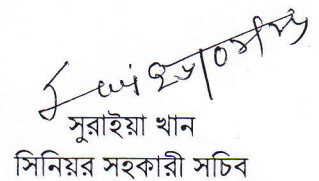 সুরাইয়া খান
সিনিয়র সহকারী সচিব